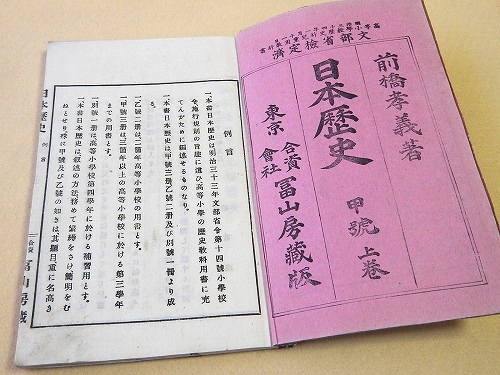 文部省檢定濟
前橋孝義著
日本歷史
甲號 上卷
東京 合資會社 冨山房藏版
例言
一、本書日本歷史は明治三十三年文部省令第十四號小學校
令施行規則の旨趣に遵ひ高等小學の歷史敎科用書に充
てんがために編述せるものなり。
一、本書日本歷史は甲號三册乙號二册及び別號一册より成
る。
一、乙號二册は二箇年高等小學校の用書とす。
一、甲號三册は三箇年以上の高等小學校に於ける第三學年
までの用書とす。
一、別號一册は、高等小學校第四學年に於ける補習用とす。
一、日本歷史は敍述の方法務めて繁縟をさけ簡明をむ
ねとせり殊に甲號及び乙號の如きは其題目重に名高き
日本歷史 例言
合資 冨山房藏